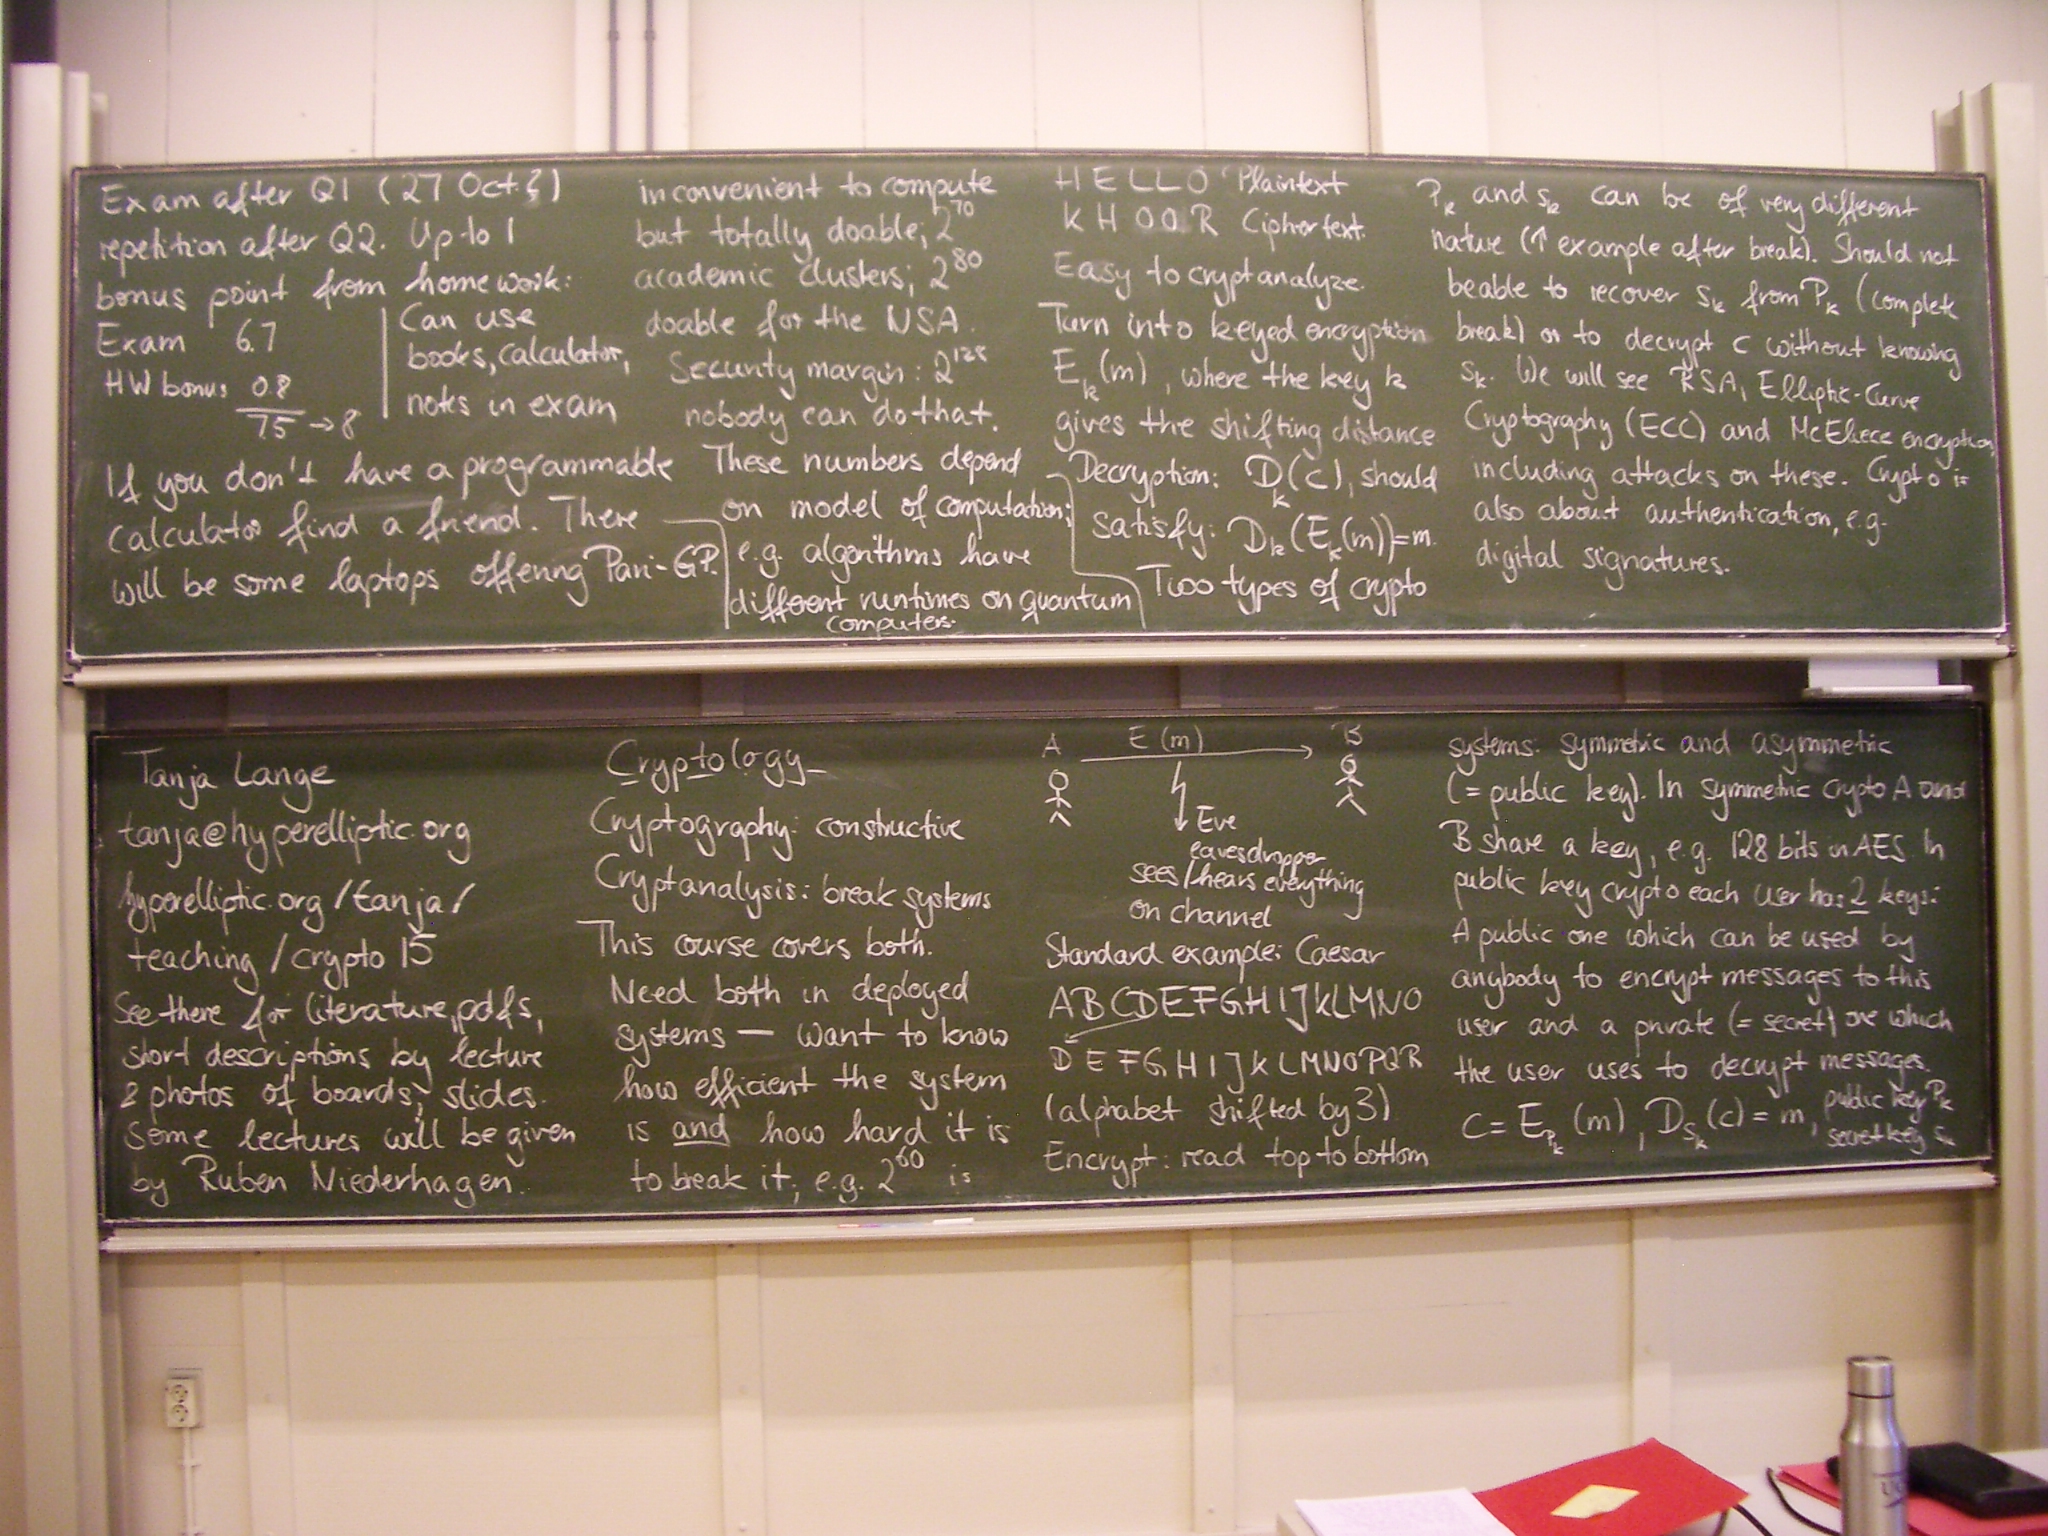 Tanja Lange
tanja@hyperelliptic.org
hyperelliptic.org/tanja/
teaching/crypto15
See there for literature, pdfs,
short descriptions by lecture
& photos of boards, slides.
Some lectures will be given
by Ruben Niederhagen.
Exam after Q1 (27 Oct?)
repetition after Q2. Up to 1
bonus point from homework:
Exam 6.7
HW bonus 0.8
7.5 → 8
Can use
books, calculator,
notes in exam
If you don't have a programmable
calculator find a friend. There
will be some laptops offering Pari-GP.
Cryptology
Cryptography: constructive
Cryptanalysis: break systems
This course covers both.
Need both in deployed
systems — want to know
how efficient the system
is and how hard it is
to break it, e.g. 2^60 is
inconvenient to compute
but totally doable; 2^70
academic clusters; 2^80
doable for the NSA.
Security margin: 2^128
nobody can do that.
These numbers depend
on model of computation;
e.g. algorithms have
different runtimes on quantum
computers.
A E(m) B
Eve
eavesdropper
sees/hears everything
on channel
Standard example: Caesar
ABCDEFGHIJKLMNO
DEFGHIJKLMNOPQR
(alphabet shifted by 3)
Encrypt: read top to bottom
HELLO Plaintext
KHOOR Ciphertext.
Easy to cryptanalyze.
Turn into keyed encryption
E_k(m), where the key k
gives the shifting distance
Decryption: D_k(c), should
satisfy: D_k(E_k(m))=m.
Two types of crypto
systems: symmetric and asymmetric
(= public key). In symmetric crypto A and
B share a key, e.g. 128 bits in AES. In
public key crypto each user has 2 keys:
A public one which can be used by
anybody to encrypt messages to this
user and a private (= secret) one which
the user uses to decrypt messages.
c = E_{P_k}(m), D_{S_k}(c) = m, public key P_k
secret key S_k
P_k and S_k can be of very different
nature (↑ example after break). Should not
beable to recover S_k from P_k (complete
break) or to decrypt c without knowing
S_k. We will see RSA, Elliptic-Curve
Cryptography (ECC) and McEliece encryption,
including attacks on these. Crypto is
also about authentication, e.g.
digital signatures.